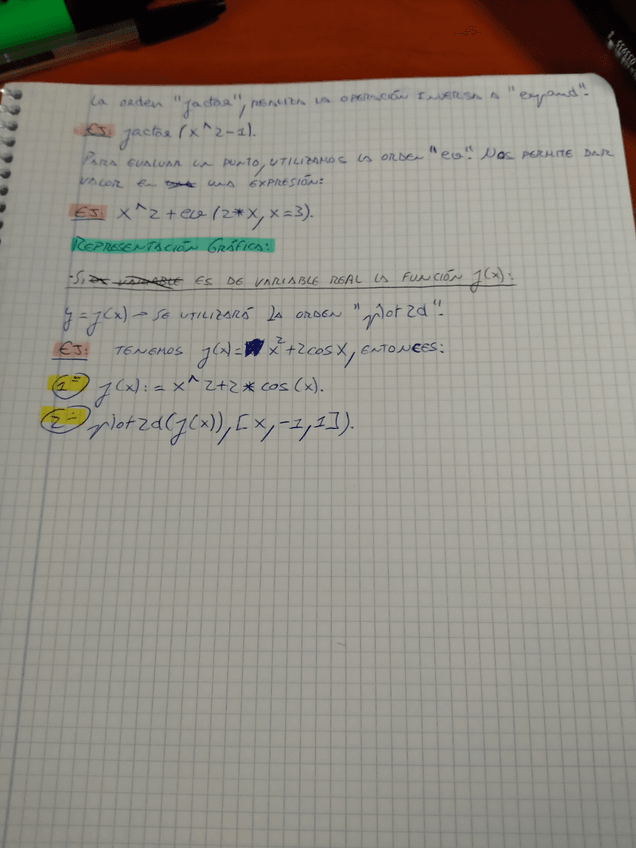 La orden "factor", realiza la operación inversa a "expand".
EJ: factor (x^2-1).
Para evaluar un punto, utilizamos la orden "ev". Nos permite dar
valor en una expresión:
EJ: x^2+ev(2*x, x=3).
Representación Gráfica:
·Si es de variable real la función f(x):
y=f(x)→ se utilizará la orden "plot2d".
EJ: Tenemos f(x)= x²+2cosx, entonces:
1º f(x):= x^2+2*cos(x).
2º plot2d(f(x)),[x,-1,1]).